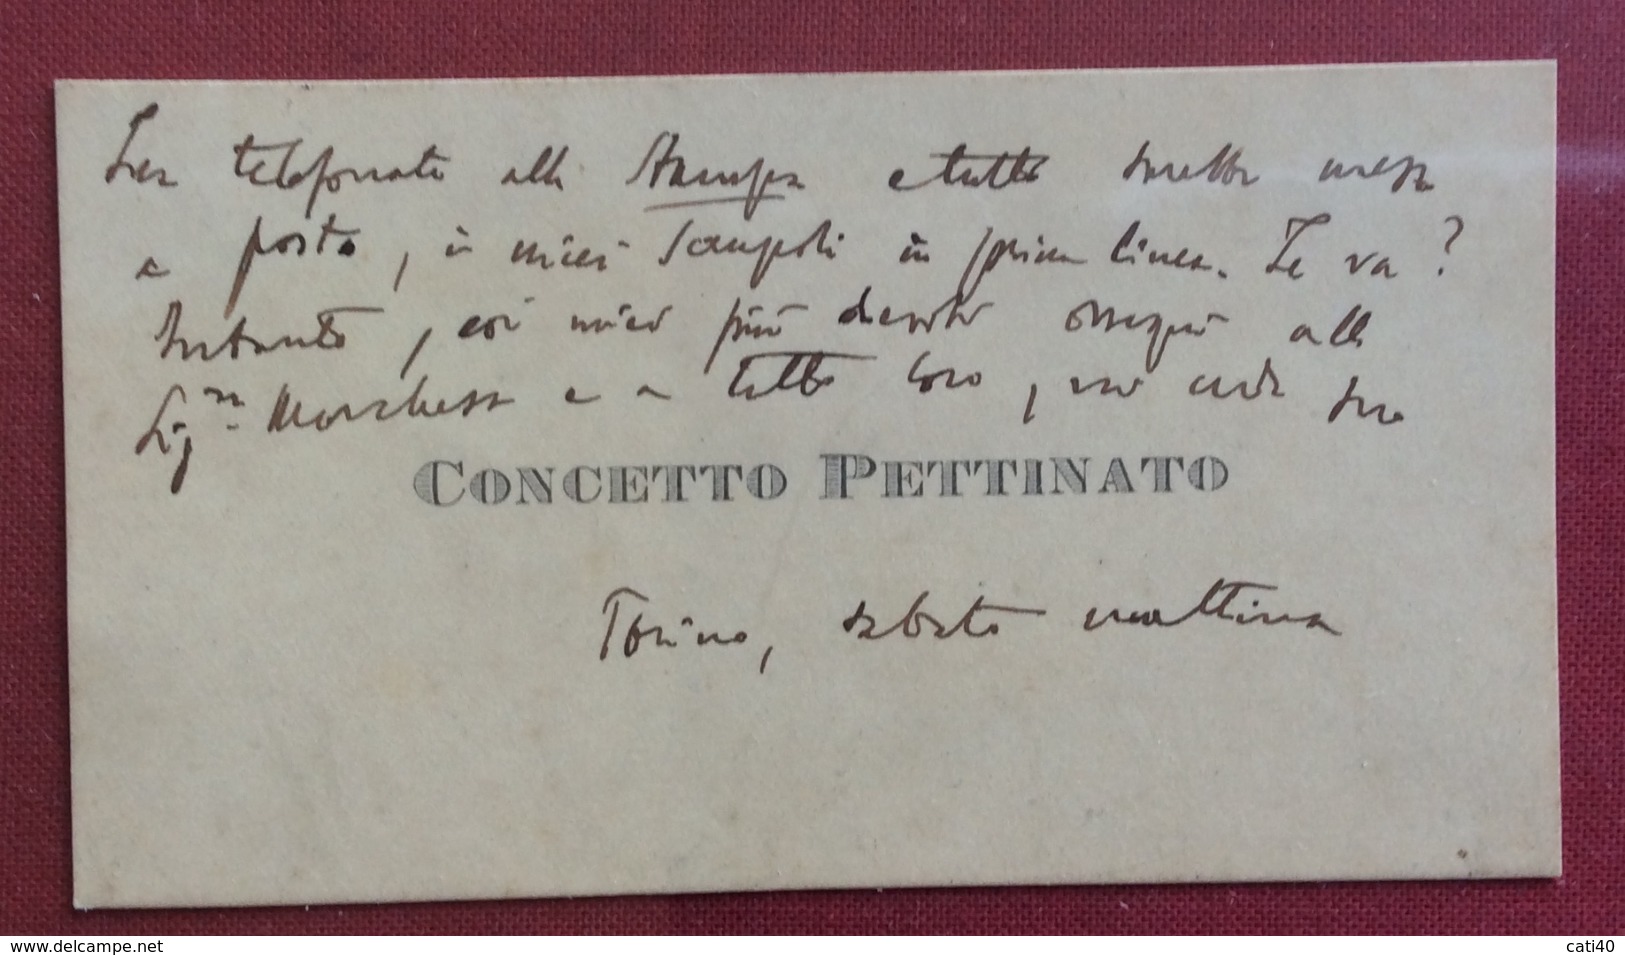 telefonato alla Stampa e tutto sarebbe messo
a posto, i miei scrupoli in prima linea. Le va?
Intanto, coi miei più devoti ossequi alla
Sig.ra Marchesa e a tutti loro, mi creda suo
CONCETTO PETTINATO
Torino, sabato mattina
www.delcampe.net
cati40